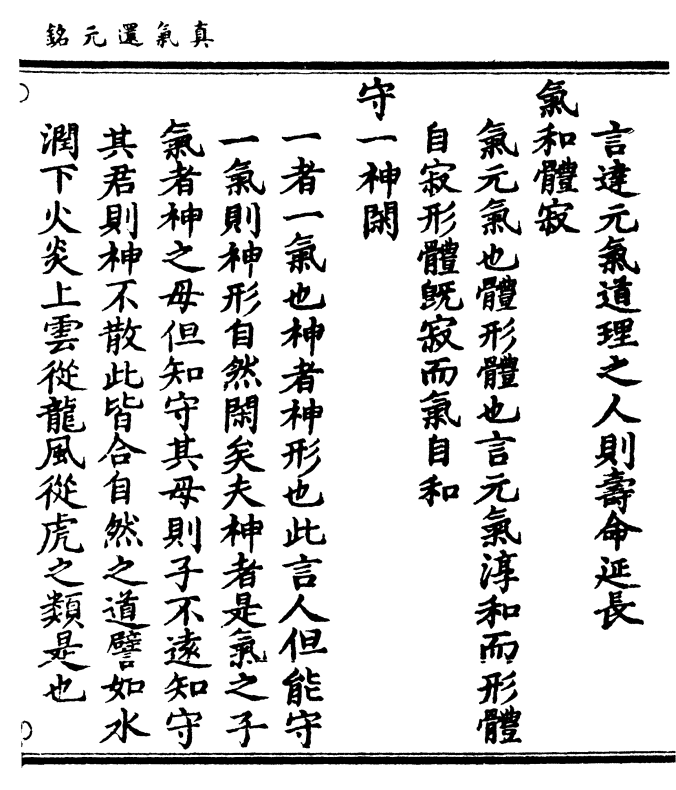 真氣還元銘
言達元氣道理之人則壽命延長
氣和體寂
氣元氣也體形體也言元氣淳和而形體
自寂形體既寂而氣自和
守一神閑
一者一氣也神者神形也此言人但能守
一氣則神形自然閑矣夫神者是氣之子
氣者神之母但知守其母則子不遠知守
其君則神不散此皆合自然之道譬如水
潤下火炎上雲從龍風從虎之類是也